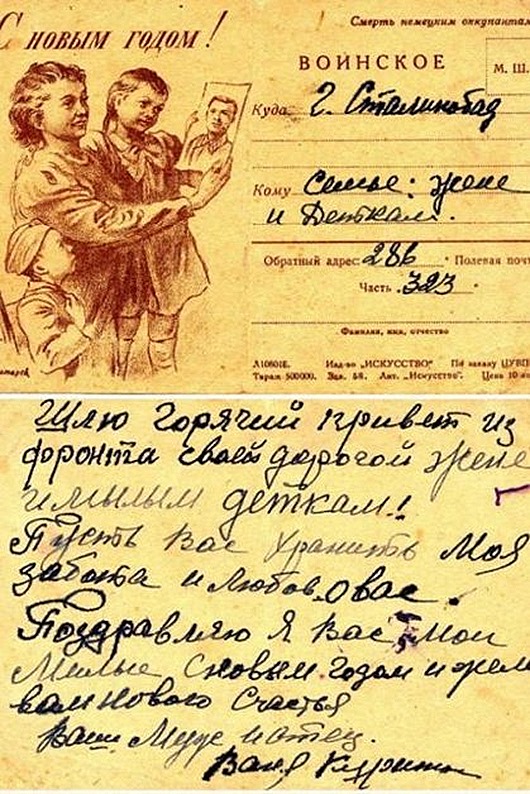 С НОВЫМ ГОДОМ!
Смерть немецким оккупантам
ВОИНСКОЕ
М. Ш.
Куда г. Сталинобад
Кому Семье: жене
и Деткам.
Обратный адрес: 286 Полевая почт
Часть 323
Фамилия, имя, отчество
А108018. Изд-во „ИСКУССТВО" По заказу ЦУВП
Тираж 500000. Зак. 58. Лит. „Искусство". Цена 10
Шлю горячий привет из
фронта своей дорогой жене
и милым деткам!
Пусть Вас хранить Моя
забота и любов о вас.
Поздравляю я Вас Мои
Милые с новым годом и жела
вам нового счастья
Ваш Муж и отец.
Ваня